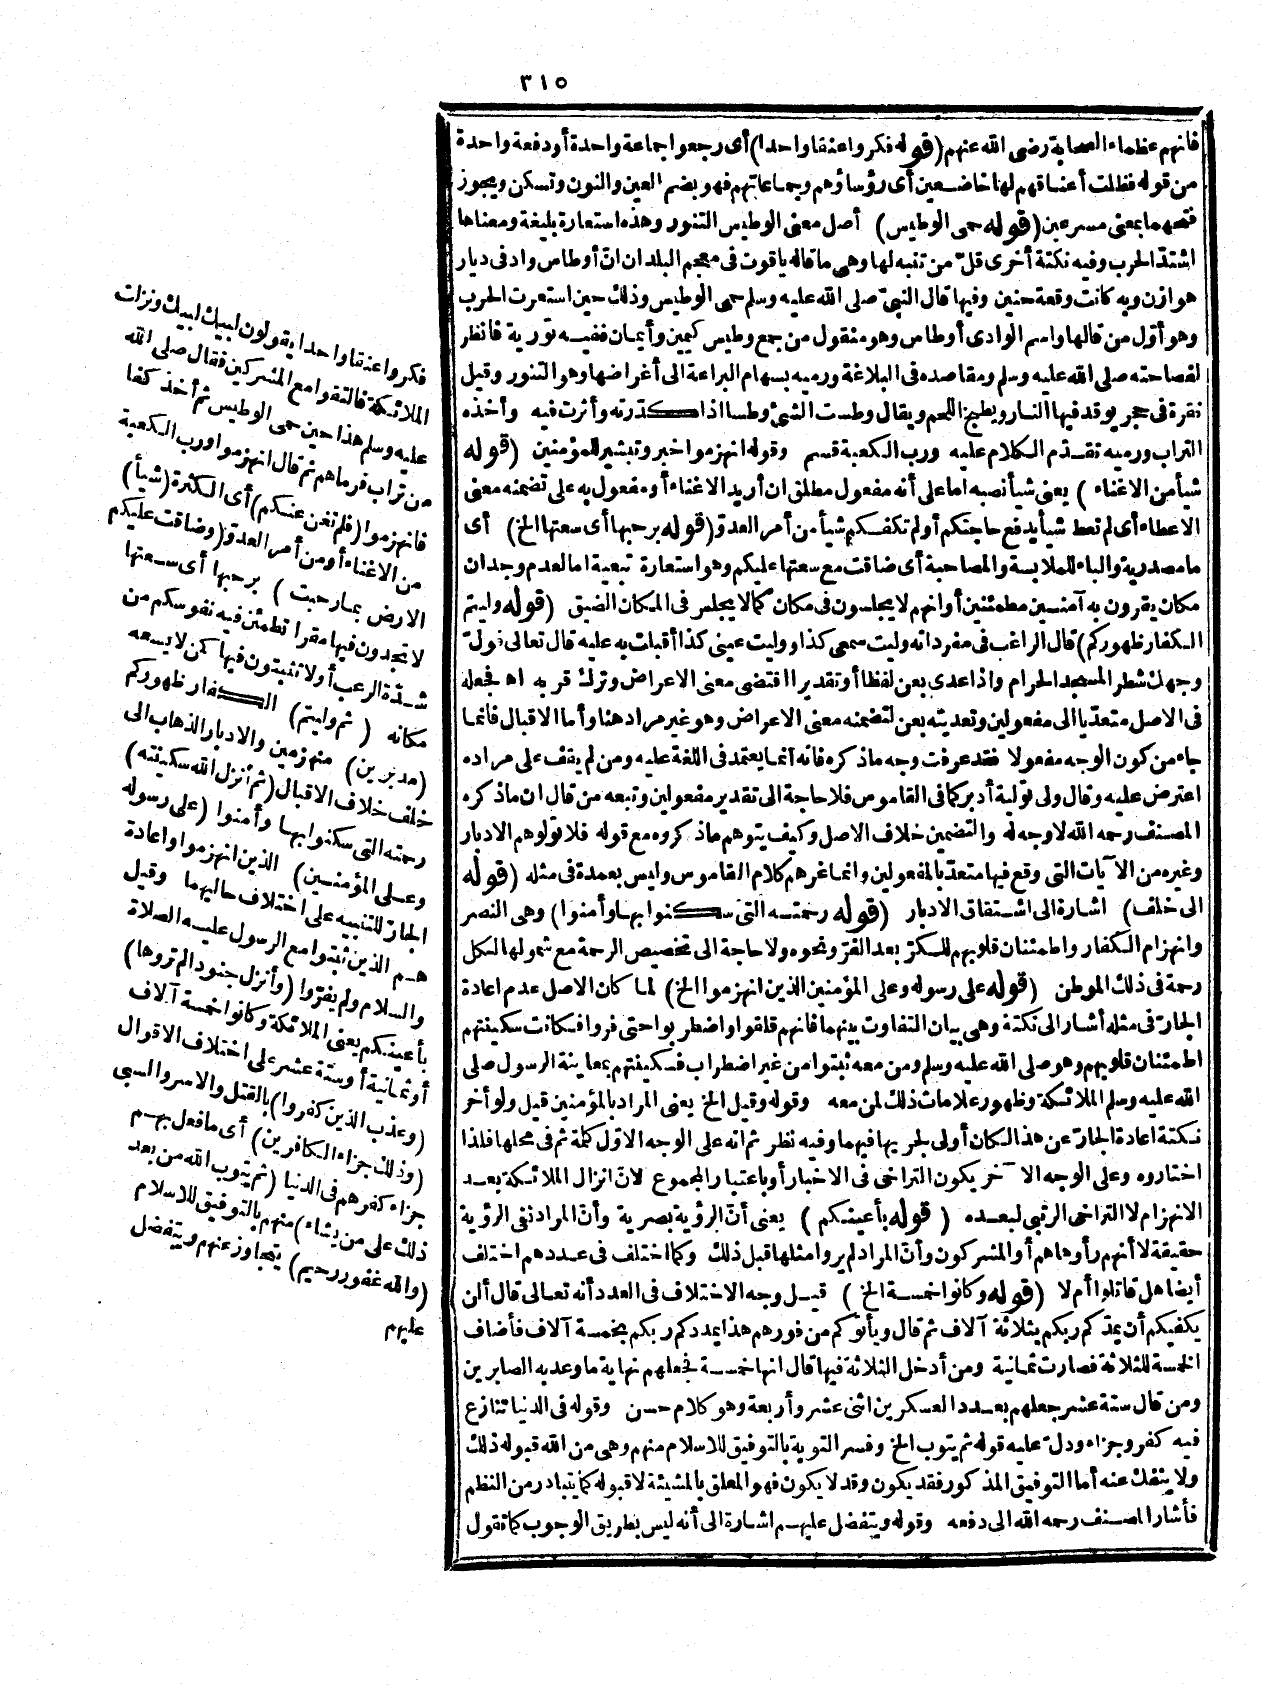 ٣١٥
فانهم عظماء الصحابة رضى الله عنهم (قوله فكروا عنقا واحدا) أى رجعوا جماعة واحدة أو دفعة واحدة
من قوله فظلت أعناقهم لها خاضعين أى رؤساؤهم وجماعاتهم فهو بضم العين والنون وتسكن ويجوز
فتحهما بمعنى مسرعين (قوله حمى الوطيس) أصل معنى الوطيس التنور وهذه استعارة بليغة ومعناها
اشتدّ الحرب وفيه نكتة أخرى قلّ من تنبه لها وهى ما قاله ياقوت فى معجم البلدان انّ أوطاس واد فى ديار
هوازن وبه كانت وقعة حنين وفيها قال النبىّ صلى الله عليه وسلم حمى الوطيس وذلك حين استعرت الحرب
وهو أوّل من قالها واسم الوادى أوطاس وهو منقول من جمع وطيس كيمين وأيمان ففيه تورية فانظر
لفصاحته صلى الله عليه وسلم ومقاصده فى البلاغة ورميه بسهام البراعة الى أغراضها وهو التنور وقيل
نقرة فى حجر يوقد فيها النار ويطبخ اللحم ويقال وطست الشئ وطسا اذا كدّرته وأثرت فيه وأخذه
التراب ورميه تقدّم الكلام عليه ورب الكعبة قسم وقوله انهزموا خبر وتبشير للمؤمنين (قوله
شيأ من الاغناء) يعنى شيأ نصبه اما على أنه مفعول مطلق ان أريد الاغناء أو مفعول به على تضمنه معنى
الاعطاء أى لم تعط شيأ يدفع حاجتكم أو لم تكفكم شيأ من أمر العدوّ (قوله برحبها أى سعتها الخ) أى
ما مصدرية والباء للملابسة والمصاحبة أى ضاقت مع سعتها عليكم وهو استعارة تبعية اما لعدم وجدان
مكان يقرون به آمنسين مطمئنين أو انهم لا يجلسون فى مكان كما لا يجلس فى المكان الضيق (قوله وليتم
الكفار ظهوركم) قال الراغب فى مفرداته وليت سمعى كذا ووليت عينى كذا أقبلت به عليه قال تعالى فولّ
وجهك شطر المسجد الحرام واذا عدى بعن لفظا أو تقديرا اقتضى معنى الاعراض وترك قربه اه فجعله
فى الاصل متعدّيا الى مفعولين وتعديته بعن لتضمنه معنى الاعراض وهو غير مراد هنا وأما الاقبال فانما
جاء من كون الوجه مفعولا فقد عرفت وجه ما ذكره فانه انما يعتمد فى اللغة عليه ومن لم يقف على مراده
اعترض عليه وقال ولى تولية أدبر كما فى القاموس فلا حاجة الى تقدير مفعولين وتبعه من قال ان ما ذكره
المصنف رحمه الله لا وجه له والتضمين خلاف الاصل وكيف يتوهم ما ذكروه مع قوله فلا تولوهم الادبار
وغيره من الآيات التى وقع فيها متعدّيا لمفعولين وانما غرهم كلام القاموس وليس بعمدة فى مثله (قوله
الى خلف) اشارة الى اشتقاق الادبار (قوله رحمته التى سكنوا بها وأمنوا) وهى النصر
وانهزام الكفار واطمئنان قلوبهم للكرّ بعد الفرّ ونحوه ولا حاجة الى تخصيص الرحمة مع شمولها لكل
رحمة فى ذلك الموطن (قوله على رسوله وعلى المؤمنين الذين انهزموا الخ) لما كان الاصل عدم اعادة
الجارّ فى مثله أشار الى نكتة وهى بيان التفاوت بينهما فانهم قلقوا واضطربوا حتى فروا فكانت سكينتهم
اطمئنان قلوبهم وهو صلى الله عليه وسلم ومن معه ثبتوا من غير اضطراب فسكينتهم بمعاينة الرسول صلى
الله عليه وسلم الملائكة وظهور علامات ذلك لمن معه وقوله وقيل الخ يعنى المراد بالمؤمنين قيل ولو أخر
نكتة اعادة الجارّ عن هذا لكان أولى لجريها فيهما وفيه نظر ثم انه على الوجه الاوّل كلمة ثم فى محلها فلذا
اختاروه وعلى الوجه الآخر يكون التراخى فى الاخبار أو باعتبار المجموع لانّ انزال الملائكة بعد
الانهزام لا التراخى الرتبى لبعده (قوله بأعينكم) يعنى أنّ الرؤية بصرية وأنّ المراد نفى الرؤية
حقيقة لا أنهم رأوها هم أو المشركون وأنّ المراد لم يروا مثلها قبل ذلك وكما اختلف فى عددهم اختلف
أيضا هل قاتلوا أم لا (قوله وكانوا خمسة الخ) قيل وجه الاختلاف فى العدد أنه تعالى قال ألن
يكفيكم أن يمدّكم ربكم بثلاثة آلاف ثم قال ويأتوكم من فورهم هذا يمددكم ربكم بخمسة آلاف فأضاف
الخمسة للثلاثة فصارت ثمانية ومن أدخل الثلاثة فيها قال انها خمسة فجعلهم نهاية ما وعد به الصابرين
ومن قال ستة عشر جعلهم بعدد العسكرين اثنى عشر وأربعة وهو كلام حسن وقوله فى الدنيا تنازع
فيه كفر وجزاء ودلّ عليه قوله ثم يتوب الخ وفسر التوبة بالتوفيق للاسلام منهم وهى من الله قبوله ذلك
ولا ينفك عنه أما التوفيق المذكور فقد يكون وقد لا يكون فهو المعلق بالمشيئة لا قبوله كما يتبادر من النظم
فأشار المصنف رحمه الله الى دفعه وقوله ويتفضل عليهم اشارة الى أنه ليس بطريق الوجوب كما تقول
فكروا عنقا واحدا يقولون لبيك لبيك ونزلت
الملائكة فالتقوا مع المشركين فقال صلى الله
عليه وسلم هذا حين حمى الوطيس ثم أخذ كفا
من تراب فرماهم ثم قال انهزموا ورب الكعبة
فانهزموا (فلم تغن عنكم) أى الكثرة (شيأ)
من الاغناء أو من أمر العدوّ (وضاقت عليكم
الارض بما رحبت) برحبها أى سعتها
لا تجدون فيها مقرا تطمئن فيه نفوسكم من
شدّة الرعب أو لا تثبتون فيها كمن لا يسعه
مكانه (ثم وليتم) الكفار ظهوركم
(مدبرين) منهزمين والادبار الذهاب الى
خلف خلاف الاقبال (ثم أنزل الله سكينته)
رحمته التى سكنوا بها وأمنوا (على رسوله
وعلى المؤمنين) الذين انهزموا واعادة
الجارّ للتنبيه على اختلاف حاليهما وقيل
هم الذين ثبتوا مع الرسول عليه الصلاة
والسلام ولم يفرّوا (وأنزل جنودا لم تروها)
بأعينكم يعنى الملائكة وكانوا خمسة آلاف
أو ثمانية أو ستة عشر على اختلاف الاقوال
(وعذب الذين كفروا) بالقتل والاسر والسبى
(وذلك جزاء الكافرين) أى ما فعل بهم
جزاء كفرهم فى الدنيا (ثم يتوب الله من بعد
ذلك على من يشاء) منهم بالتوفيق للاسلام
(والله غفور رحيم) يتجاوز عنهم ويتفضل
عليهم